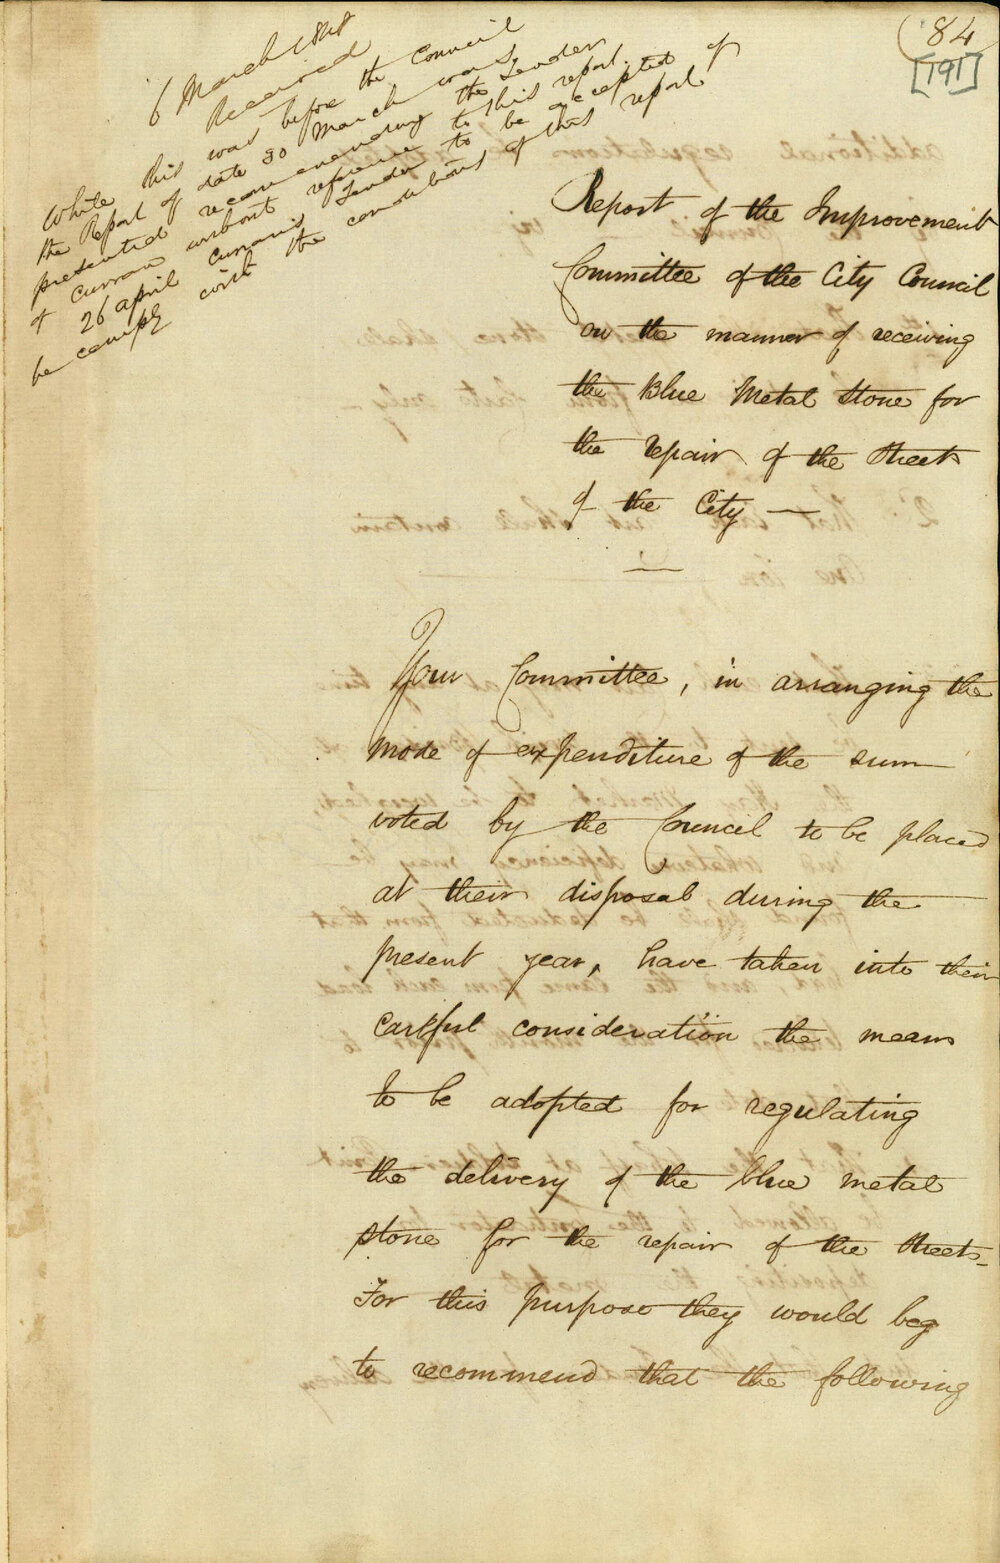 84
[191]
6 March 1848
Received
While this was before the Council
the Report of date 30 March was
presented recommending the Tender
of Curran without reference to this report.
26 april Currans Tender to be accepted of
he comply with the conditions of this report
Report of the Improvement
Committee of the City Council
on the manner of receiving
the Blue Metal Stone for
the repair of the Streets
of the City —
Your Committee, in arranging the
mode of expenditure of the sum
voted by the Council to be placed
at their disposal during the
present year, have taken into their
careful consideration the means
to be adopted for regulating
the delivery of the blue metal
stone for the repair of the streets_
For this purpose they would beg
to recommend that the following